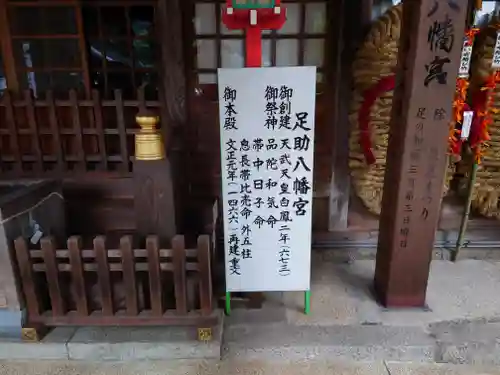 足助八幡宮
御創建 天武天皇白鳳二年(六七三)
御祭神 品陀和気命
帯中日子命
息長帯比売命外五柱
御本殿 文正元年(一四六六)再建重文
八幡宮